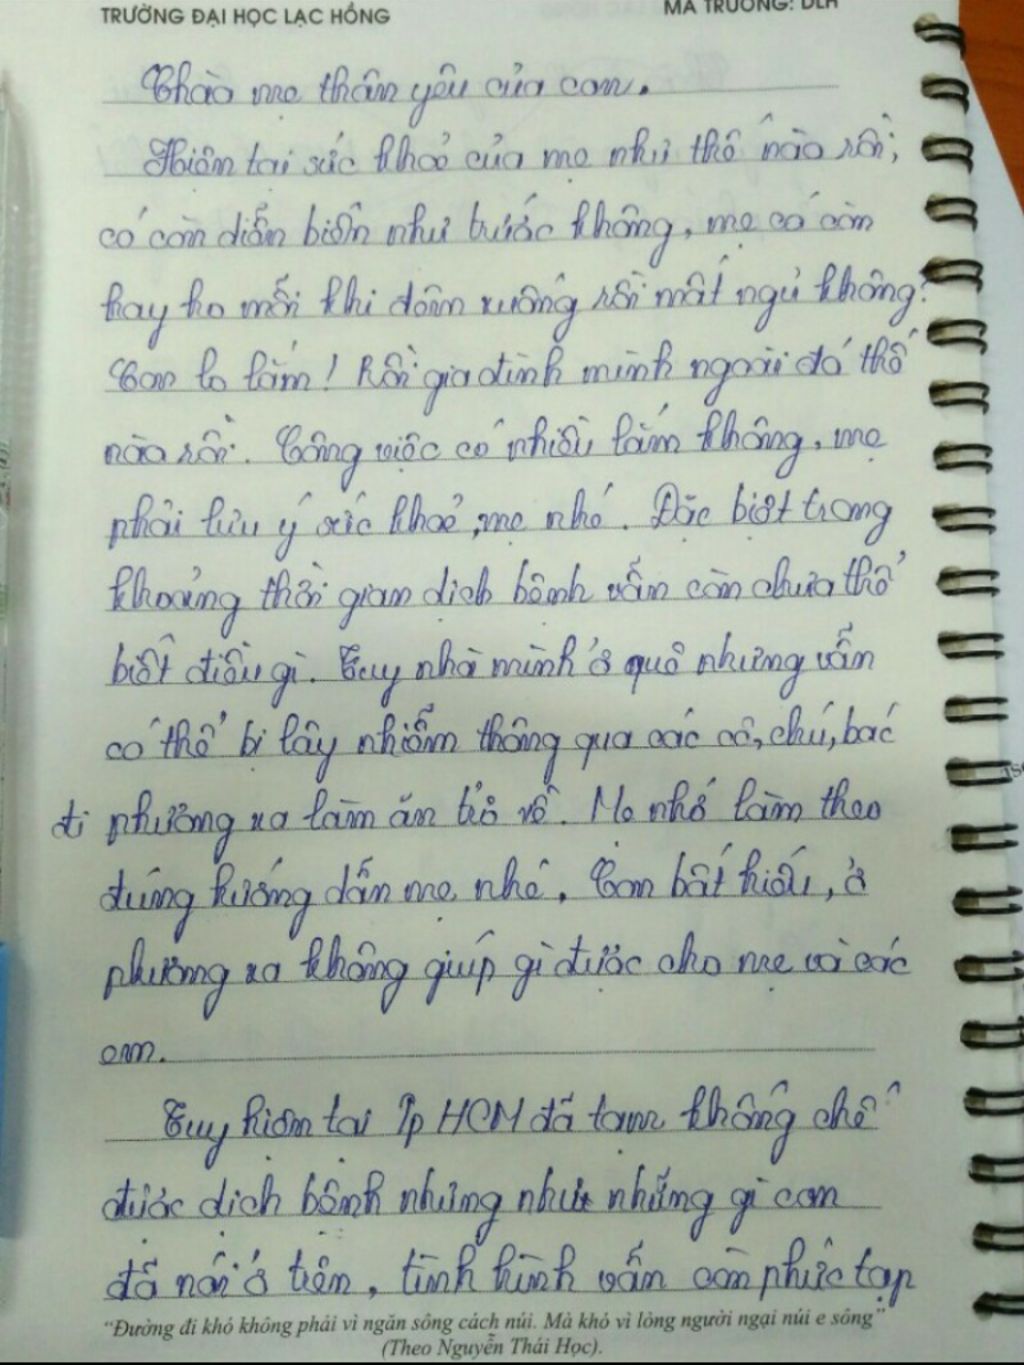 TRƯỜNG ĐẠI HỌC LẠC HỒNG
MÃ TRƯỜNG: DLH
Chào mẹ thân yêu của con.
Hiện tại sức khoẻ của mẹ như thế nào rồi,
có còn diễn biến như trước không, mẹ có còn
hay ho mỗi khi đêm xuống rồi mất ngủ không?
Con lo lắm! Rồi gia đình mình ngoài đó thế
nào rồi. Công việc có nhiều lắm không, mẹ
phải lưu ý sức khoẻ, mẹ nhé. Đặc biệt trong
khoảng thời gian dịch bệnh vẫn còn chưa thể
biết điều gì. Tuy nhà mình ở quê nhưng vẫn
có thể bị lây nhiễm thông qua các cô, chú, bác
đi phương xa làm ăn trở về. Mẹ nhớ làm theo
đúng hướng dẫn mẹ nhé. Con bất hiếu, ở
phương xa không giúp gì được cho mẹ và các
em.
Tuy hiện tại Tp HCM đã tạm khống chế
được dịch bệnh nhưng như những gì con
đã nói ở trên, tình hình vẫn còn phức tạp
"Đường đi khó không phải vì ngăn sông cách núi. Mà khó vì lòng người ngại núi e sông"
(Theo Nguyễn Thái Học).